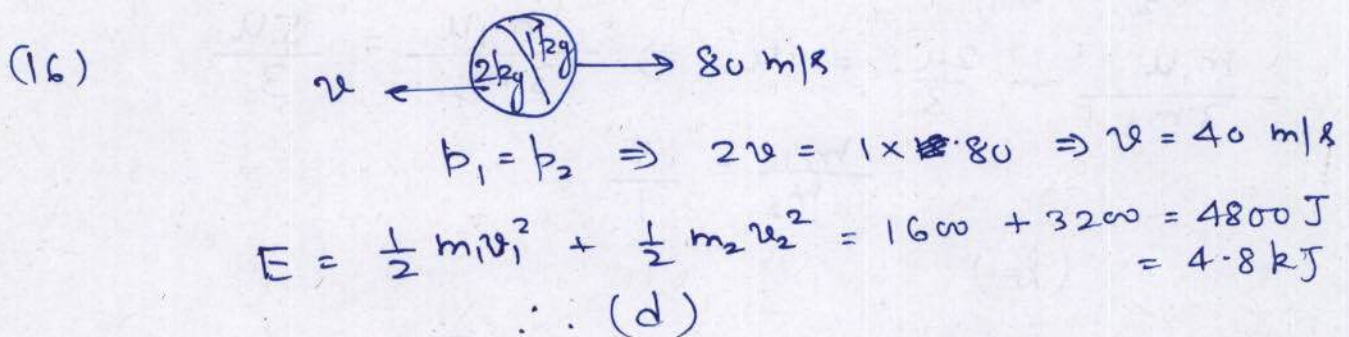 (16)
v ← 2kg 1kg → 80 m/s
p₁ = p₂ ⇒ 2v = 1 × 80 ⇒ v = 40 m/s
E = ½ m₁v₁² + ½ m₂v₂² = 1600 + 3200 = 4800 J
= 4.8 kJ
∴ (d)